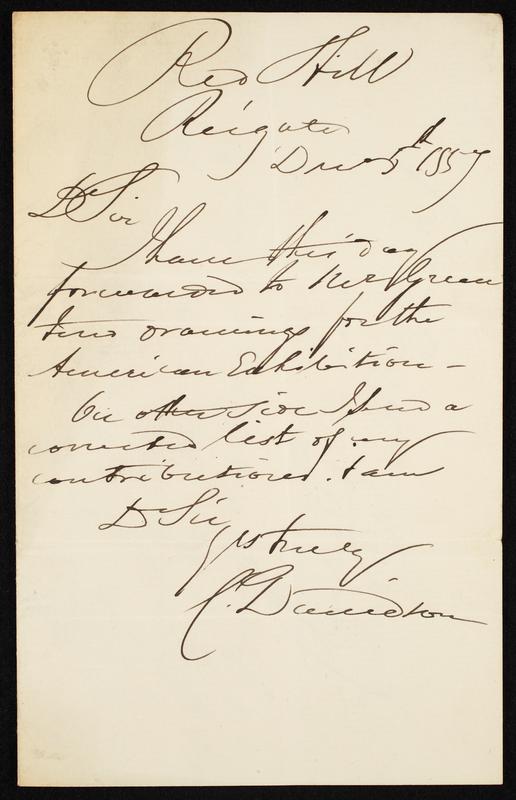 Red Hill
Reigate
Dec 5th 1857
Dr Sir
I have this day
forwarded to Mr Green
two drawings for the
American Exhibition -
On other side I send a
corrected list of my
contributions. I am
Dr Sir
yrs truly
C. Davidson